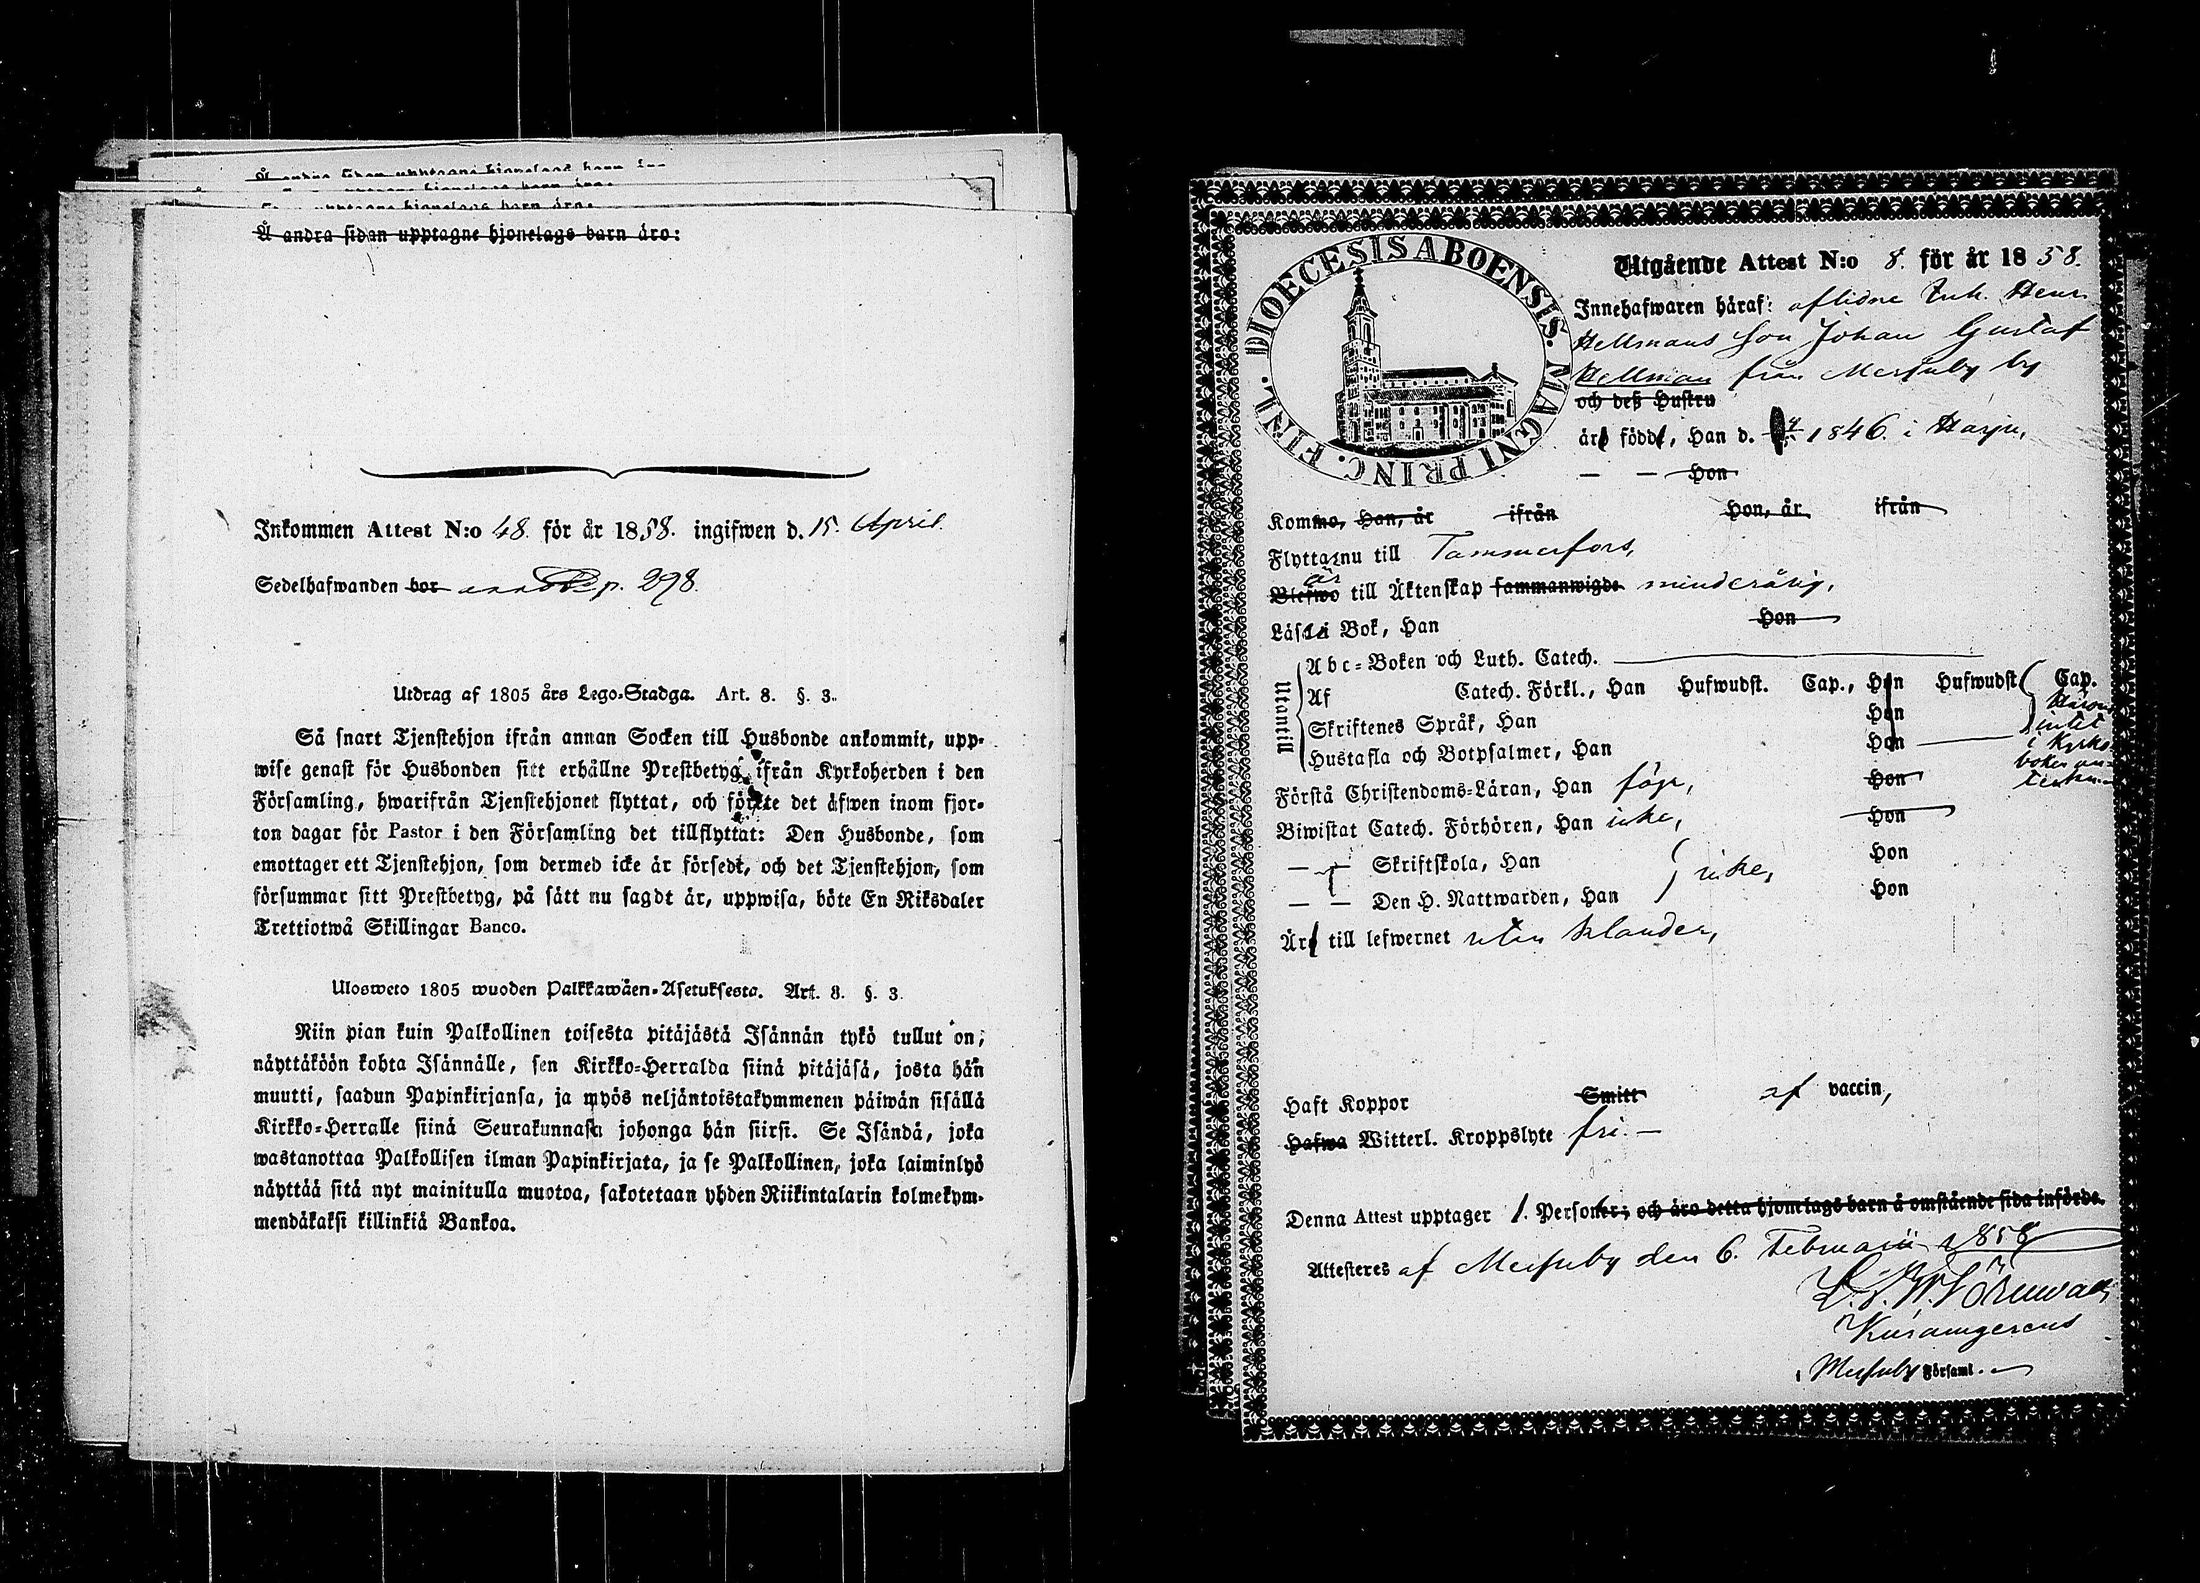 Å andra sidan upptagne hjonelags barn äro:
Inkommen Attest N:o 48. för år 1858. ingifwen d. 15. April.
Sedelhafwanden bor p. 298.
Utdrag af 1805 års Lego-Stadga. Art. 8. §. 3.
Så snart Tjenstehjon ifrån annan Socken till Husbonde ankommit, upp-
wise genast för Husbonden sitt erhållne Prestbetyg ifrån Kyrkoherden i den
Församling, hwarifrån Tjenstehjonet flyttat, och förete det äfwen inom fjor-
ton dagar för Pastor i den Församling det tillflyttat: Den Husbonde, som
emottager ett Tjenstehjon, som dermed icke är försedt, och det Tjenstehjon, som
försummar sitt Prestbetyg, på sätt nu sagdt är, uppwisa, böte En Riksdaler
Trettiotwå Skillingar Banco.
Ulosweto 1805 wuoden Palkkawäen-Asetuksesta. Art. 8. §. 3.
Niin pian kuin Palkollinen toisesta pitäjästä Isännän tykö tullut on,
näyttäköön kohta Isännälle, sen Kirkko-Herralda siinä pitäjäsä, josta hän
muutti, saadun Papinkirjansa, ja myös neljäntoistakymmenen päiwän sisällä
Kirkko-Herralle siinä Seurakunnasa johonga hän siirsi. Se Isändä, joka
wastanottaa Palkollisen ilman Papinkirjata, ja se Palkollinen, joka laiminlyö
näyttää sitä nyt mainitulla muotoa, sakotetaan yhden Riikintalarin kolmekym-
mendäkaksi killinkiä Bankoa.
DIOECESIS ABOENSIS. MAGNI PRINC. FINL.
Utgående Attest N:o 8. för år 1858.
Innehafwaren häraf: aflidne Inh. Henr.
Hellmans son Johan Gustaf
Hellman från Messuby by
och deß Hustru
äro födde, Han d. 1846. i Harju,
— — Hon
Kommo, Han, år ifrån Hon, år ifrån
Flytta nu till Tammerfors,
är
Blefwo till Äktenskap sammanwigde minderårig,
Läsa i Bok, Han Hon
Utantill
Abc-Boken och Luth. Catech.
Af Catech. Förkl., Han Hufwudst. Cap., Hon Hufwudst. Cap.
Skriftenes Språk, Han Hon
Hustafla och Botpsalmer, Han Hon
Härom
intet
i Kyrko-
boken an-
Förstå Christendoms-Läran, Han föga, Hon
Biwistat Catech. Förhören, Han icke, Hon
— — Skriftskola, Han Hon
icke,
— — Den H. Nattwarden, Han Hon
Äro till lefwernet utan klander,
Haft Koppor Smitt af vaccin,
Hafwa Witterl. Kroppslyte fri. —
Denna Attest upptager 1. Personer; och äro detta hjonelags barn å omstående sida införde.
Attesteras af Messuby den 6. Februarii 1858
Messuby Församl.